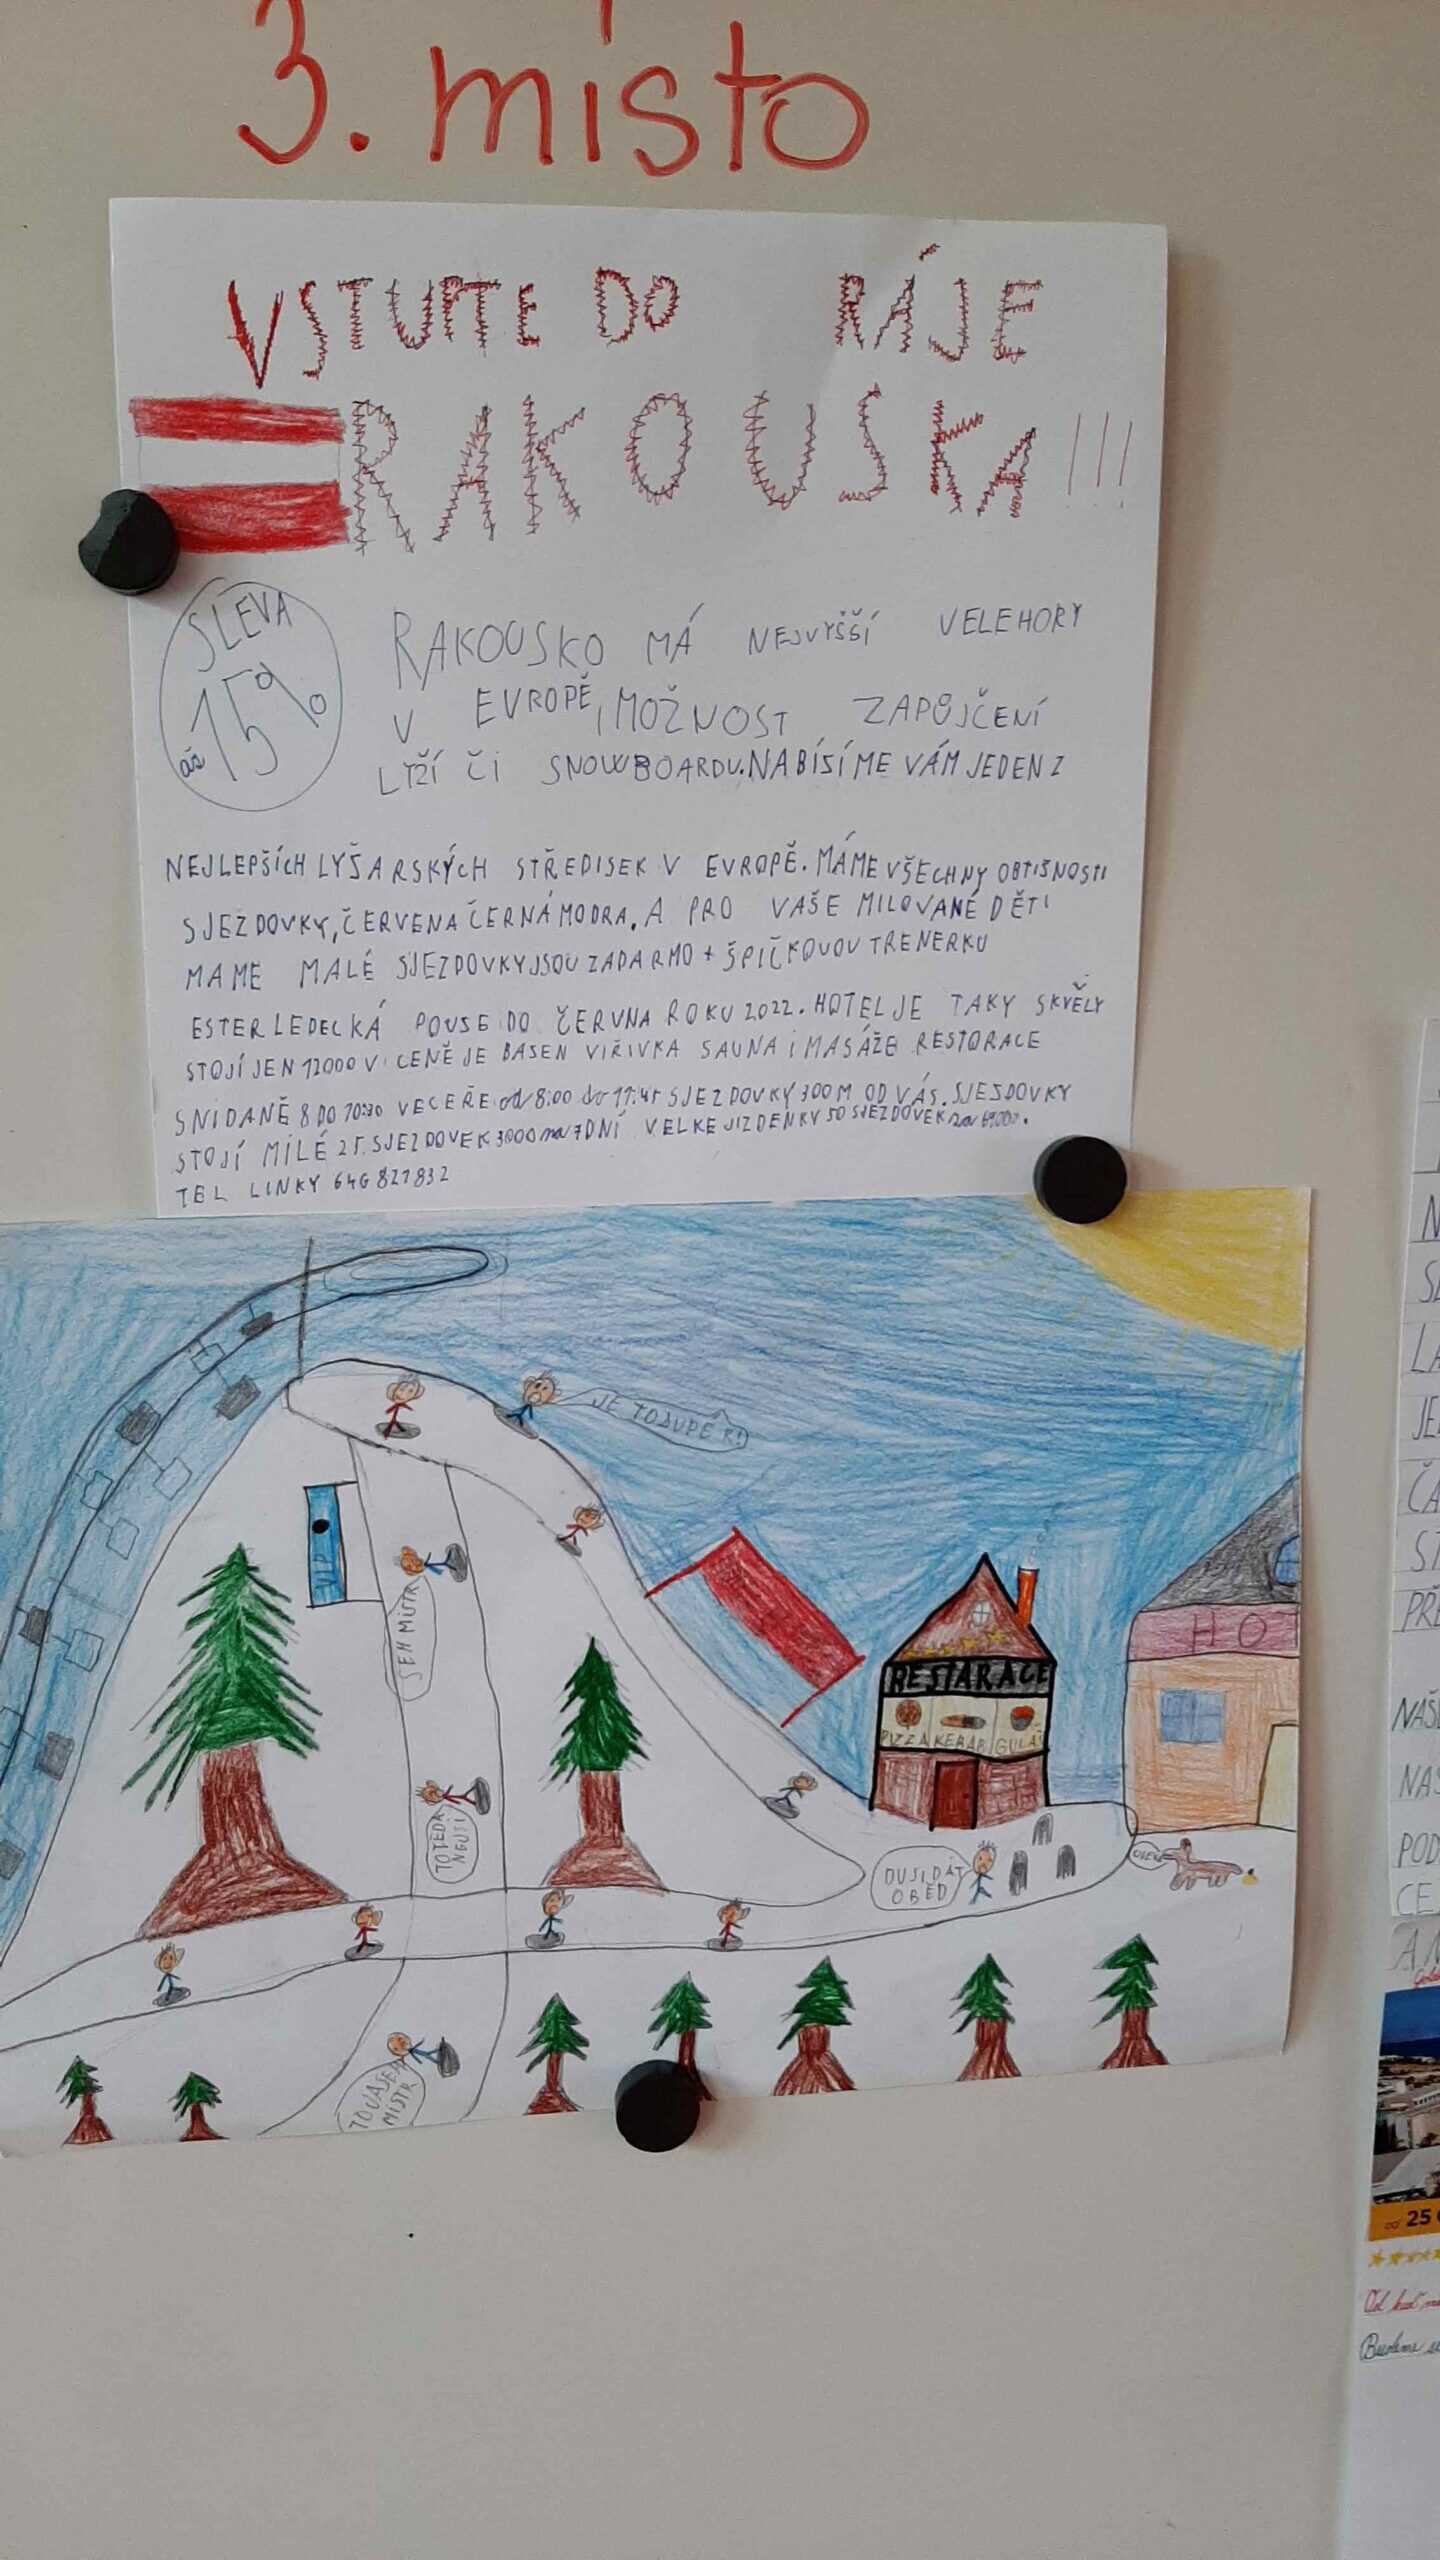 3. místo
VSTUPTE DO RÁJE
RAKOUSKA!!!
SLEVA
až 15%
RAKOUSKO MÁ NEJVYŠŠÍ VELEHORY
V EVROPĚ, MOŽNOST ZAPŮJČENÍ
LYŽÍ ČI SNOWBOARDU. NABÍSÍME VÁM JEDEN Z
NEJLEPŠÍCH LYŠARSKÝCH STŘEDISEK V EVROPĚ. MÁME VŠECHNY OBTIŠNOSTI
SJEZDOVKY, ČERVENA ČERNÁ MODRA. A PRO VAŠE MILOVANÉ DĚTI
MAME MALÉ SJEZDOVKY JSOU ZADARMO + ŠPIČKOVOU TRENERKU
ESTER LEDECKÁ POUSE DO ČERVNA ROKU 2022. HOTEL JE TAKY SKVĚLY
STOJÍ JEN 12000 V CENĚ JE BASEN VIŘIVKA SAUNA I MASÁŽE RESTORACE
SNIDANĚ 8 DO 10:30 VECEŘE od 8:00 do 11:45 SJEZDOVKY 300 M OD VÁS. SJESDOVKY
STOJÍ MILÉ 25 SJEZDOVEK 3000 na 7 DNÍ VELKE JIZDENKY 50 SJEZDOVEK za
TEL LINKY 646 821832
JE TO SUPÉR!
SEM MISTR
RESTARACE
PIZZA KEBAB GULÁŠ
HOT
TO TEDA
NEJSI
DUSI DÁT
OBĚD
TO JÁ SEM
MISTR
NAŠ
NAS
POD
CE
25